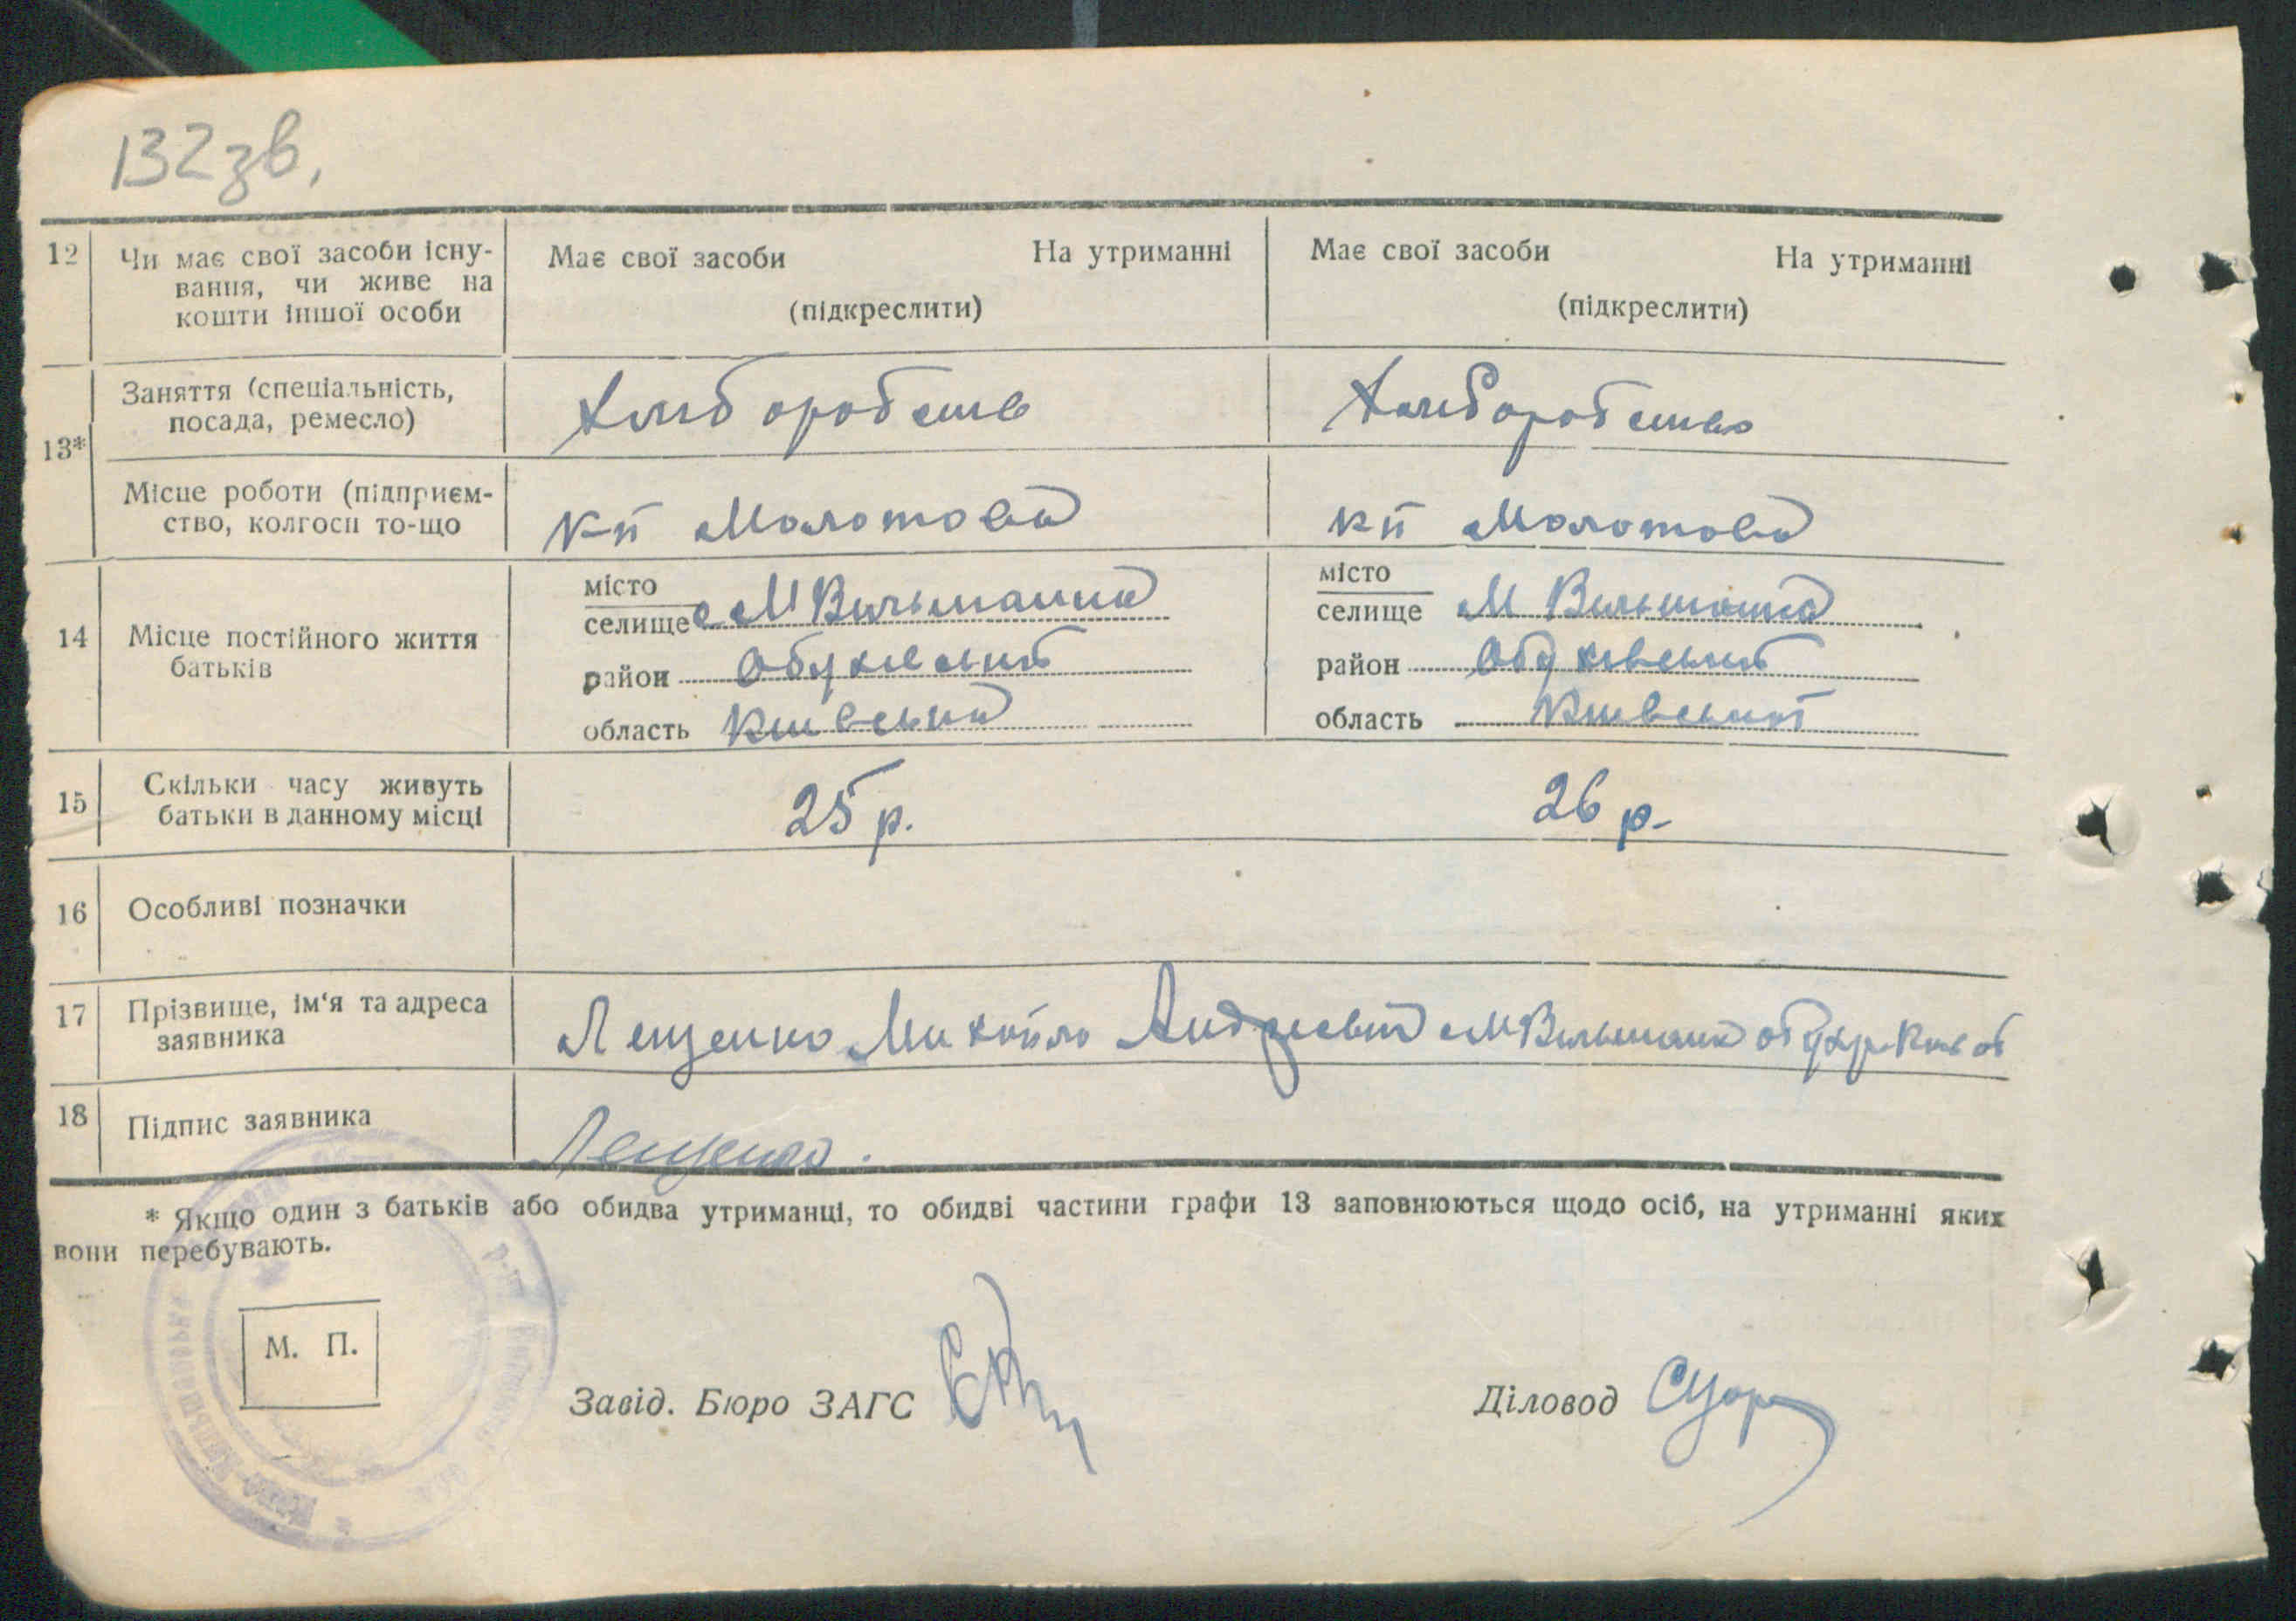 132 зв.
12 Чи має свої засоби існу-
вання, чи живе на
кошти іншої особи
Має свої засоби На утриманні
(підкреслити)
Має свої засоби На утриманні
(підкреслити)
13*
Заняття (спеціальність,
посада, ремесло)
Хліборобств
Хліборобство
Місце роботи (підприєм-
ство, колгосп то-що
кп Молотова
кп Молотова
14 Місце постійного життя
батьків
місто
селище с М Вильшанка
район Обухівський
область Київська
місто
селище М Вильшанка
район Обухівський
область Київської
15 Скільки часу живуть
батьки в данному місці
25 р.
26 р.
16 Особливі позначки
17 Прізвище, ім'я та адреса
заявника
Лещенко Михайло Андрієвич М Вильшанка
18 Підпис заявника
Лещенко.
* Якщо один з батьків або обидва утриманці, то обидві частини графи 13 заповнюються щодо осіб, на утриманні яких
вони перебувають.
М. П.
Завід. Бюро ЗАГС
Діловод